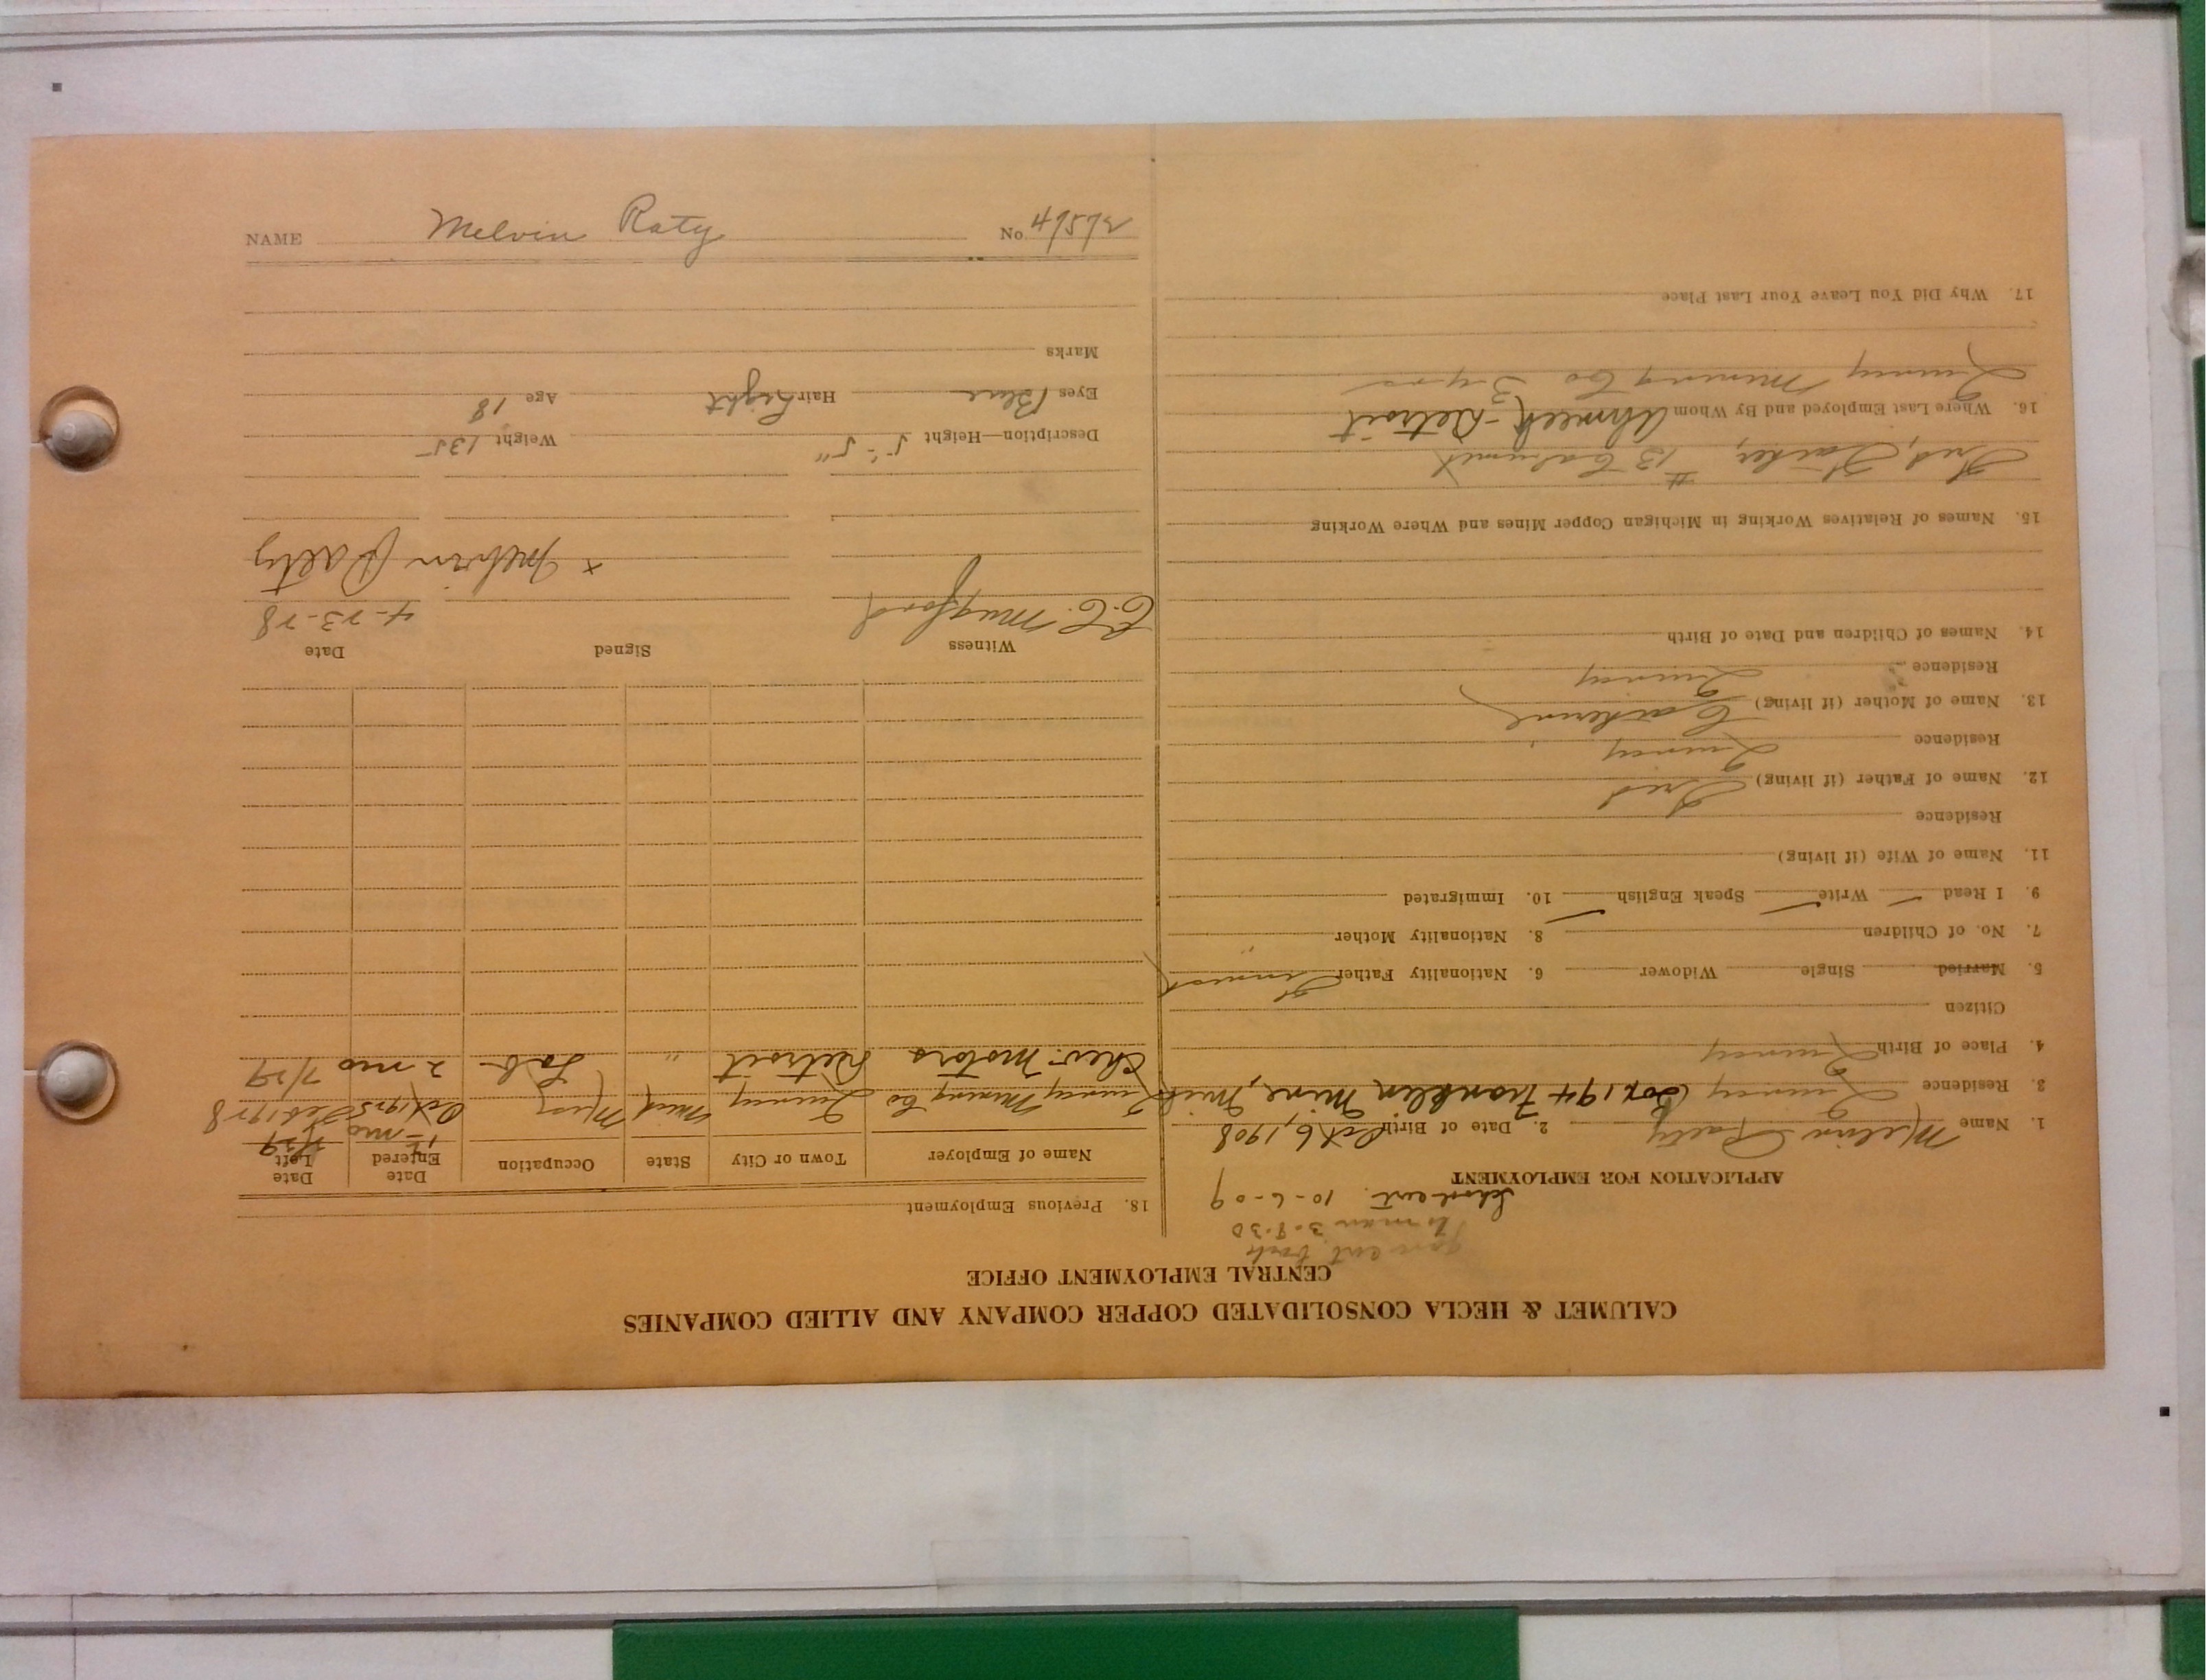 CALUMET & HECLA CONSOLIDATED COPPER COMPANY AND ALLIED COMPANIES
CENTRAL EMPLOYMENT OFFICE
3-8-30
School cert. 10-6-09
APPLICATION FOR EMPLOYMENT
1. Name Melvin Raety 2. Date of Birth Oct 6, 1908
3. Residence Quincy Box 194 Franklin Mine, Mich
4. Place of Birth Quincy
Citizen
5. Married Single Widower 6. Nationality Father Finnish
7. No. of Children 8. Nationality Mother "
9. I Read ✓ Write ✓ Speak English ✓ 10. Immigrated
11. Name of Wife (if living)
Residence
12. Name of Father (if living) Fred
Residence Quincy
13. Name of Mother (if living) Catherine
Residence Quincy
14. Names of Children and Date of Birth
15. Names of Relatives Working in Michigan Copper Mines and Where Working
Fred, Father, #13 Calumet
16. Where Last Employed and By Whom Ahmeek - Detroit
Quincy Mining Co 3 yrs
17. Why Did You Leave Your Last Place
18. Previous Employment
Name of Employer Town or City State Occupation Date Entered Date Left
Quincy Mining Co Quincy Mich Oct 1925 Feb 1928
Chev. Motors Detroit " Lab 2 mo 7/29
Witness Signed Date
C.C. Mugford 4-23-28
x Melvin Raety
Description—Height 5'-5" Weight 135
Eyes Blue Hair Light Age 18
Marks
NAME Melvin Raty No 47572